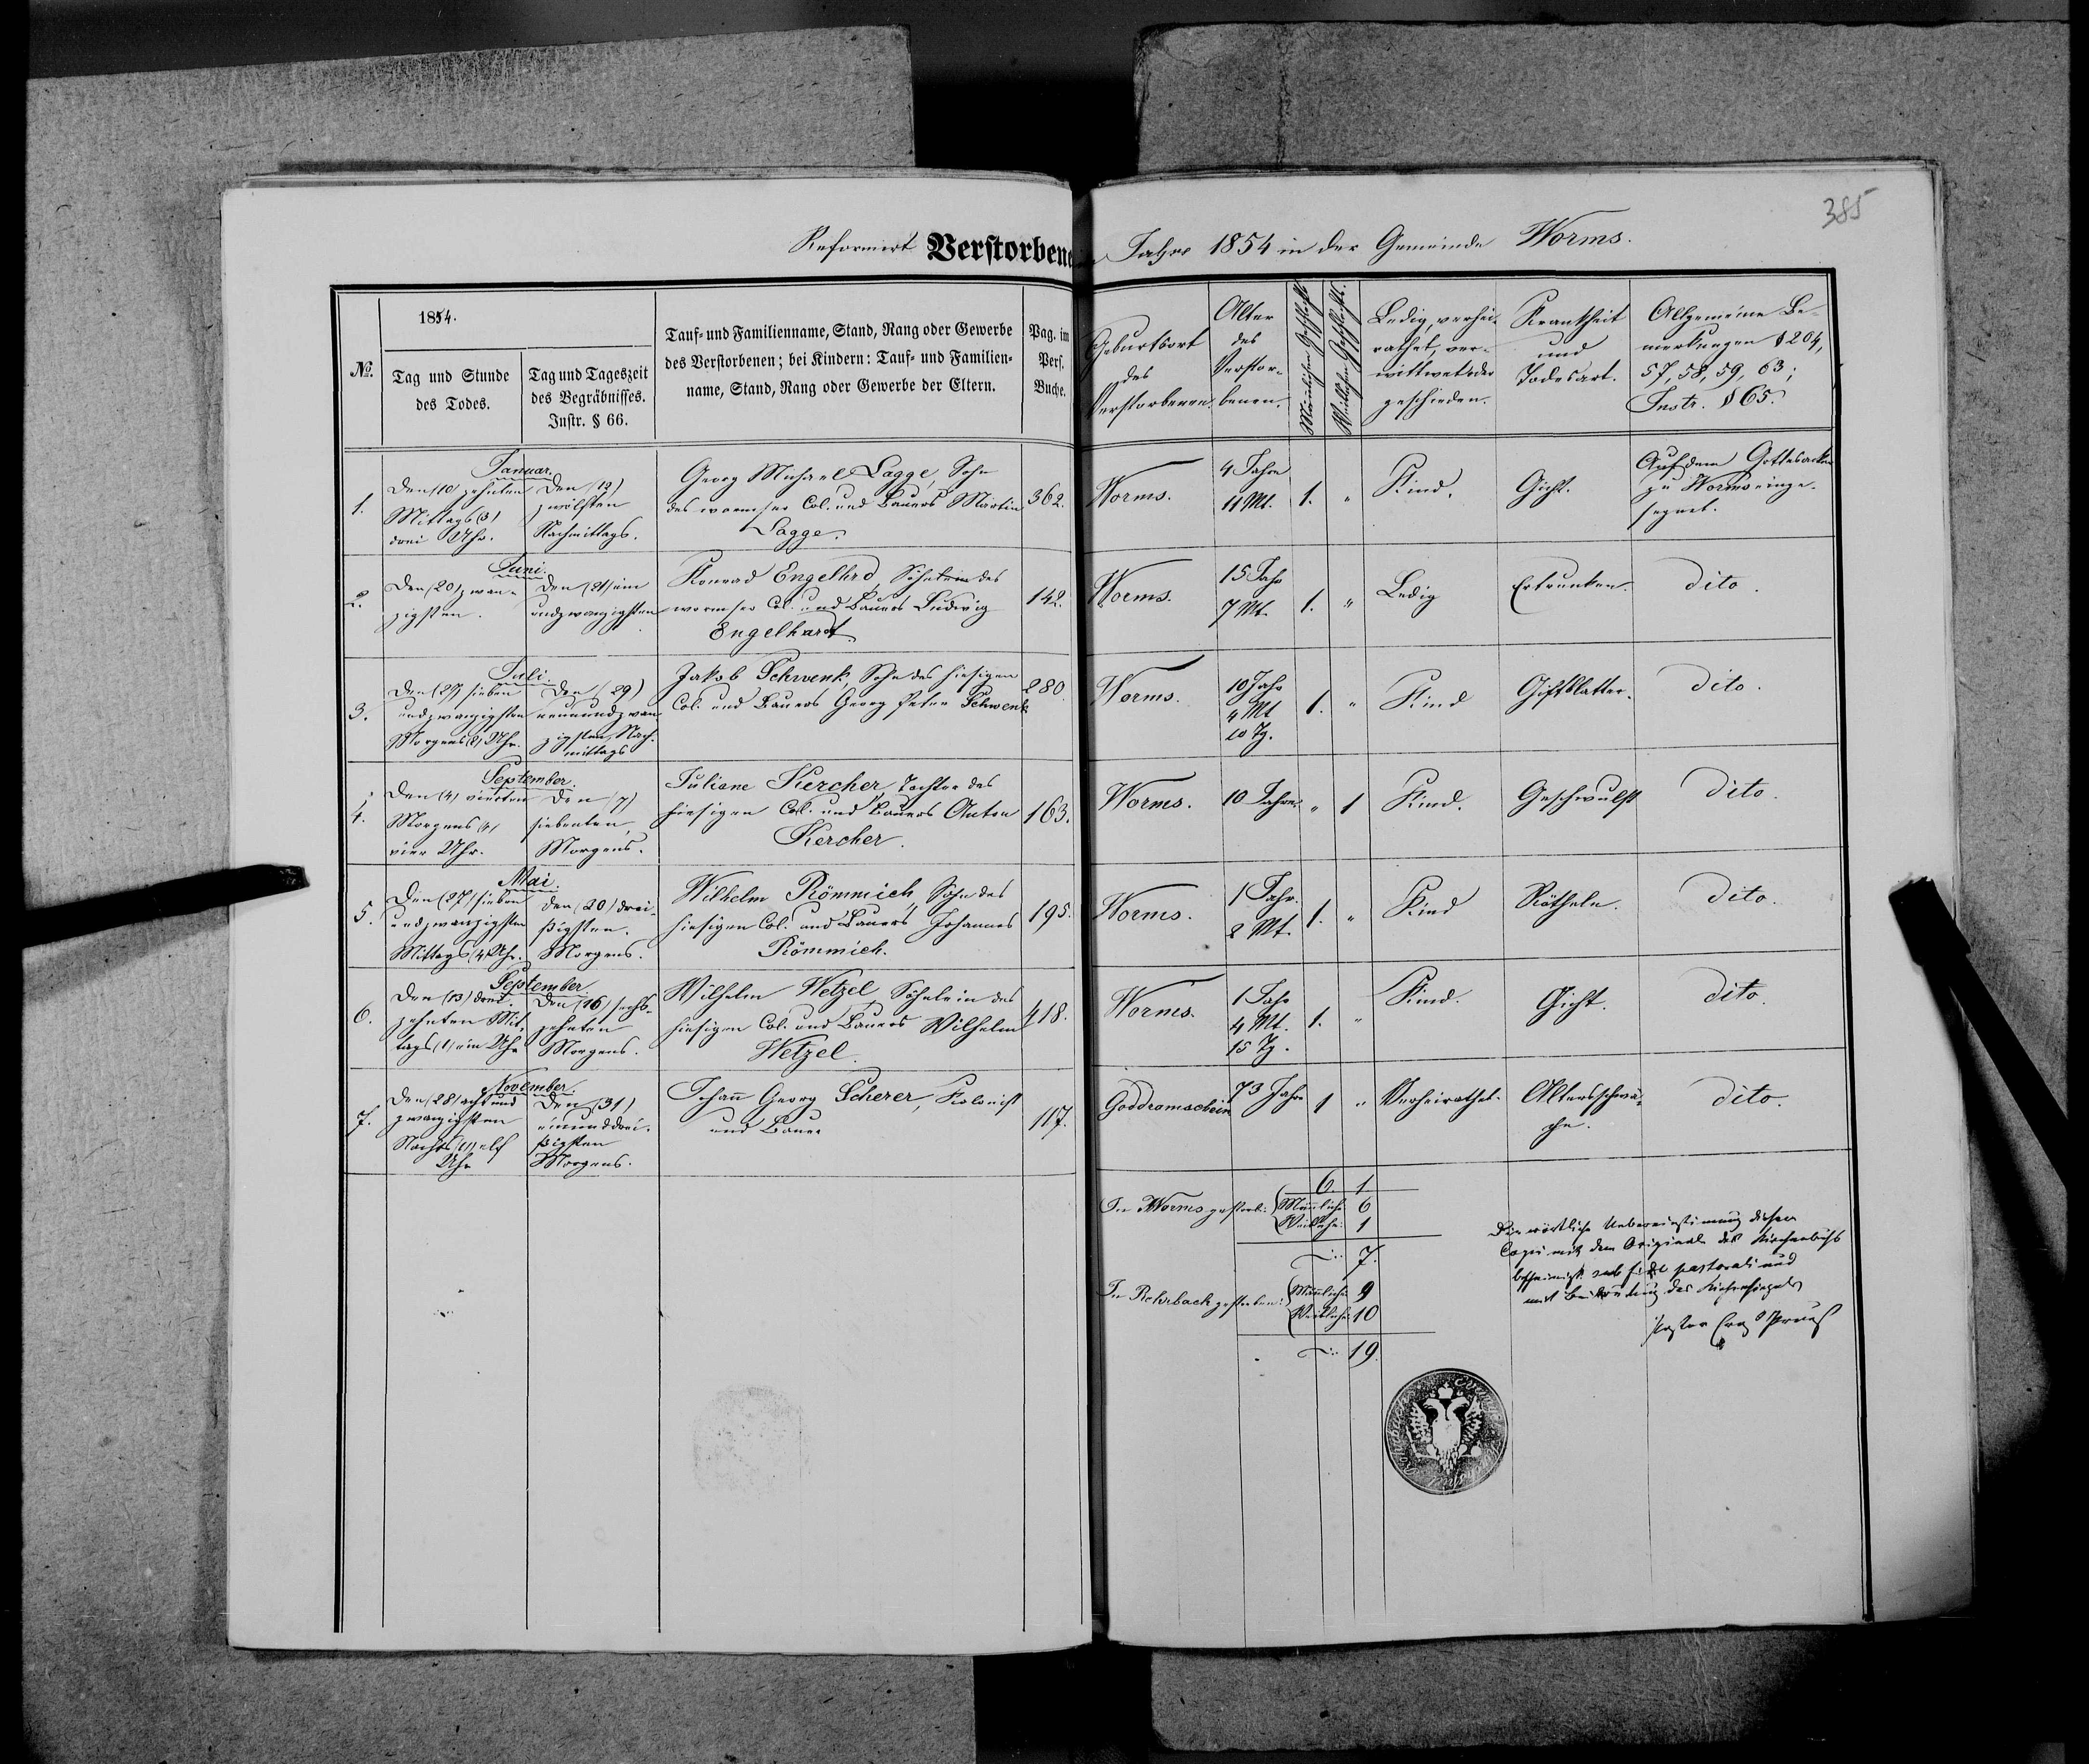 385
Reformirt Verstorbene
Jahre 1854 in der Gemeinde Worms.
1854.
No.
Tag und Stunde
des Todes.
Tag und Tageszeit
des Begräbnisses.
Instr. § 66.
Tauf- und Familienname, Stand, Rang oder Gewerbe
des Verstorbenen; bei Kindern: Tauf- und Familien-
name, Stand, Rang oder Gewerbe der Eltern.
Pag. im
Pers.
Buche.
Geburtsort
des
Verstorbenen.
Alter
des
Verstor-
benen.
Männlichen Geschlechts
Weiblichen Geschlechts.
Ledig, verhei-
rathet, ver-
wittwet oder
geschieden.
Krankheit
und
Todesart.
Allgemeine Be-
merkungen § 204,
57, 58, 59, 63;
Instr. § 65.
Januar.
1.
Den (10) zehnten
Mittags (3)
drei Uhr.
Den (12)
zwölften
Nachmittags.
Georg Michael Lagge, Sohn
des wormser Col. und Bauers Martin
Lagge.
362.
Worms.
4 Jahre
11 Mt.
1.
"
Kind.
Gicht.
Auf dem Gottesacker
zu Worms einge-
segnet.
Juni.
2.
Den (20) zwan-
zigsten.
Den (21) ein
undzwanzigsten
Konrad Engelhrd, Söhnlein des
wormser Col. und Bauers Ludwig
Engelhardt.
142.
Worms.
15 Jahr
7 Mt.
1.
"
Ledig
Ertrunken.
dito.
Juli.
3.
Den (27) sieben
undzwanzigsten
Morgens (8) Uhr.
Den (29)
neunundzwan
zigsten, Nach-
mittags
Jakob Schwenk, Sohn des hiesigen
Col. und Bauers Georg Peter Schwenk
280.
Worms.
10 Jahr
4 Mt
10 Tg.
1.
"
Kind
Giftblatter.
dito.
September.
4.
Den (4) vierten
Morgens (4)
vier Uhr.
Den (7)
siebenten,
Morgens.
Juliane Kercher, Tochter des
hiesigen Col. und Bauers Anton
Kercher.
163.
Worms.
10 Jahre.
"
1
Kind.
Geschwulst
dito.
Mai.
5.
Den (27) sieben
undzwanzigsten
Mittags (4) Uhr.
Den (30) drei-
ßigsten.
Morgens.
Wilhelm Römmich, Sohn des
hiesigen Col. und Bauers Johannes
Römmich.
195.
Worms.
1 Jahr.
2 Mt.
1.
"
Kind
Rötheln.
dito.
September.
6.
Den (13) drei-
zehnten Mit-
tags (1) ein Uhr
Den (16) sechs-
zehnten
Morgens.
Wilhelm Wetzel, Söhnlein des
hiesigen Col. und Bauers Wilhelm
Wetzel.
418.
Worms.
1 Jahr
4 Mt.
15 Tg.
1.
"
Kind.
Gicht.
dito.
November.
7.
Den (28) acht und
zwanzigsten
Nachts (11) elf
Uhr
Den (31)
einunddrei-
ßigsten
Morgens.
Johan̄ Georg Scherer, Kolonist
und Bauer
117.
Goddramschein
73 Jahre
1
"
Verheirathet.
Altersschwä-
che.
dito.
6. 1
In Worms gestorb.: Männliche: 6
Weibliche: 1
7.
In Rohrbach gestorben: Männliche: 9
Weibliche: 10
19.
Die wörtliche Uebereinstimung dieser
Copie mit dem Original des Kirchenbuchs
bescheinigt sub fide pastorali und
mit Beidrückung des Kirchensiegels
Pastor